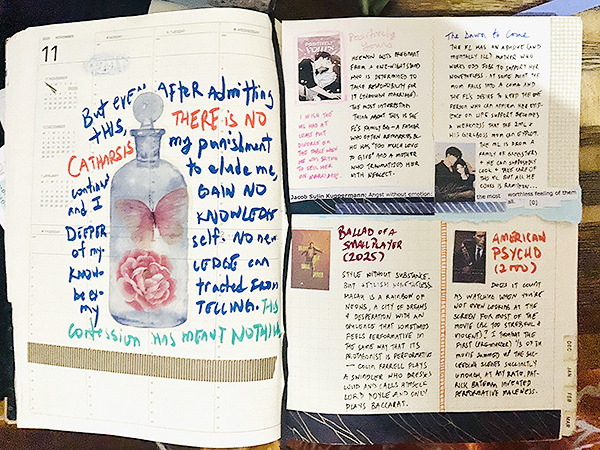 11
But even AFTER Admitting
this, THERE is NO
CATHARSIS my punishment
continues to elude me,
and I GAIN NO
DEEPER KNOWLEDGE
of my self. No new
KNOW- LEDGE can
be ex- tracted FROM
my TELLING. This
confession HAS MEANT NOTHING
Positively
Yours
HEEWON GETS PREGNANT
FROM A ONE-NIGHT STAND
WHO IS DETERMINED TO
TAKE RESPONSIBILITY FOR
IT (SHOTGUN MARRIAGE).
THE MOST INTERESTING
THING ABOUT THIS IS THE
FL'S FAMILY
HE HAS "TOO MUCH LOVE
TO GIVE" AND A MOTHER
WHO TRAUMATIZED HER
WITH NEGLECT.
I WISH THE
ML HAD AT
LEAST PUT
DIVORCE ON
THE TABLE WHEN
HE WAS TRYING
TO SELL HER
ON MARRIAGE.
The Dawn to Come
THE FL HAS AN ABUSIVE (AND
MENTALLY ILL) MOTHER WHO
WORKS ODD JOBS TO SUPPORT HER
NONETHELESS. AT SOME POINT THE
MOM FALLS INTO A COMA AND
THE FL'S DESIRE TO KEEP THE ONE
PERSON WHO CAN AFFIRM HER EXIST-
ENCE ON LIFE SUPPORT BECOMES
A WEAKNESS THAT THE 2ML &
HIS GIRLBOSS MOM CAN EXPLOIT.
THE ML IS FROM A
FAMILY OF GANGSTERS
Jacob Sujin Kuppermann: Angst without emotion: the most worthless feeling of them
all. [0]
BALLAD OF A
SMALL PLAYER
(2025)
STYLE WITHOUT SUBSTANCE.
BUT STYLISH NONETHELESS.
MACAU IS A RAINBOW OF
NEONS, A CITY OF DREAMS
& DESPERATION WITH AN
OPULENCE THAT SOMETIMES
FEELS PERFORMATIVE IN
THE SAME WAY THAT ITS
PROTAGONIST IS PERFORMATIVE
— COLIN FARRELL PLAYS
A SWINDLER WHO DRESSES
LOUD AND CALLS HIMSELF
LORD DOYLE AND ONLY
PLAYS BACCARAT.
AMERICAN
PSYCHO
(2000)
DOES IT COUNT
AS WATCHING WHEN YOU'RE
NOT EVEN LOOKING AT THE
SCREEN FOR MOST OF THE
MOVIE (BC TOO STRESSFUL &
VIOLENT)? I THOUGHT THE
FIRST 1/3 OF THE
MOVIE SUMMED UP THE SUC-
CEEDING SCENES SUCCINCTLY
ENOUGH. AT ANY RATE, PAT-
RICK BATEMAN INVENTED
PERFORMATIVE MALENESS.
DEC
JAN
FEB
MAR